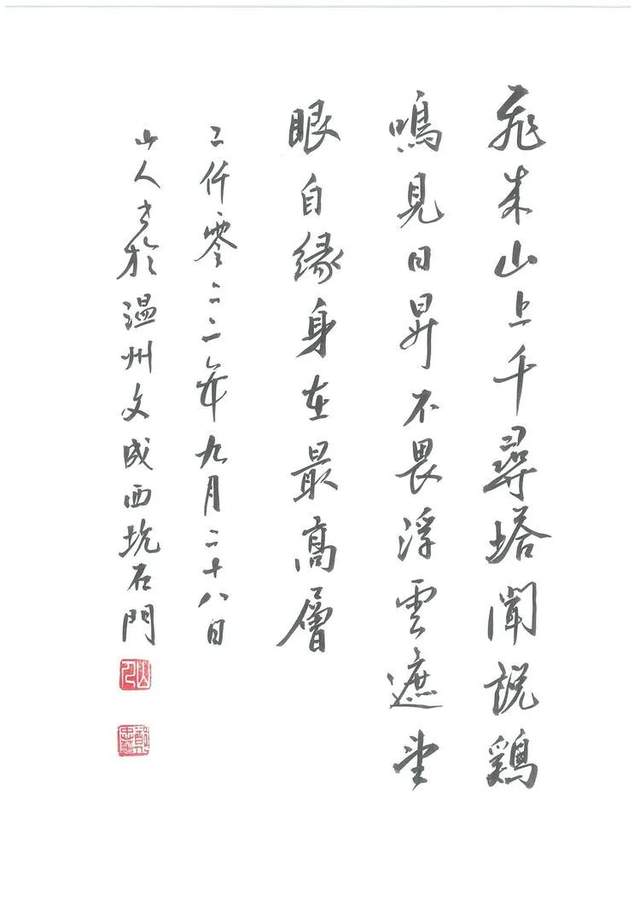 飛来山上千尋塔聞説鷄
鳴見日昇不畏浮雲遮望
眼自緣身在最高層
二仟零二二年九月二十八日
山人書於温州文成西坑石門
山人